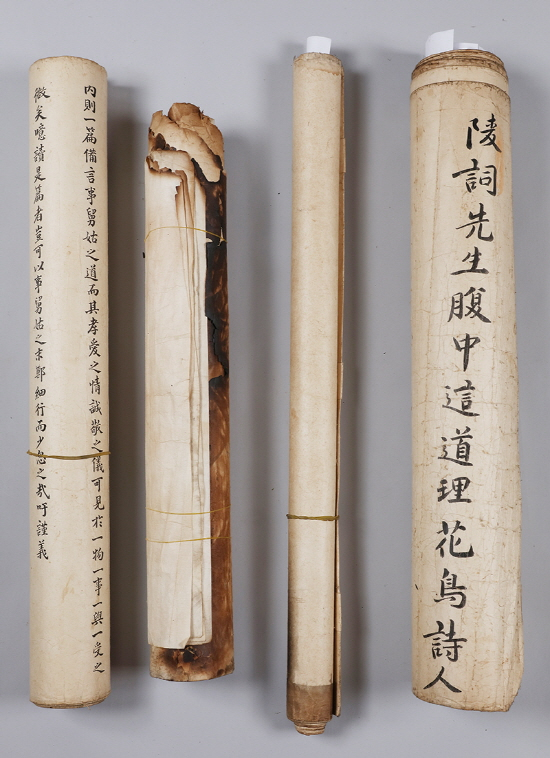 內則一篇備言事舅姑之道而其孝愛之情誠敬之儀可見於一物一事一與一受之
微矣噫讀是篇者豈可以事舅姑之末節細行而少忽之哉吁謹義
陵詞先生腹中這道理花鳥詩人